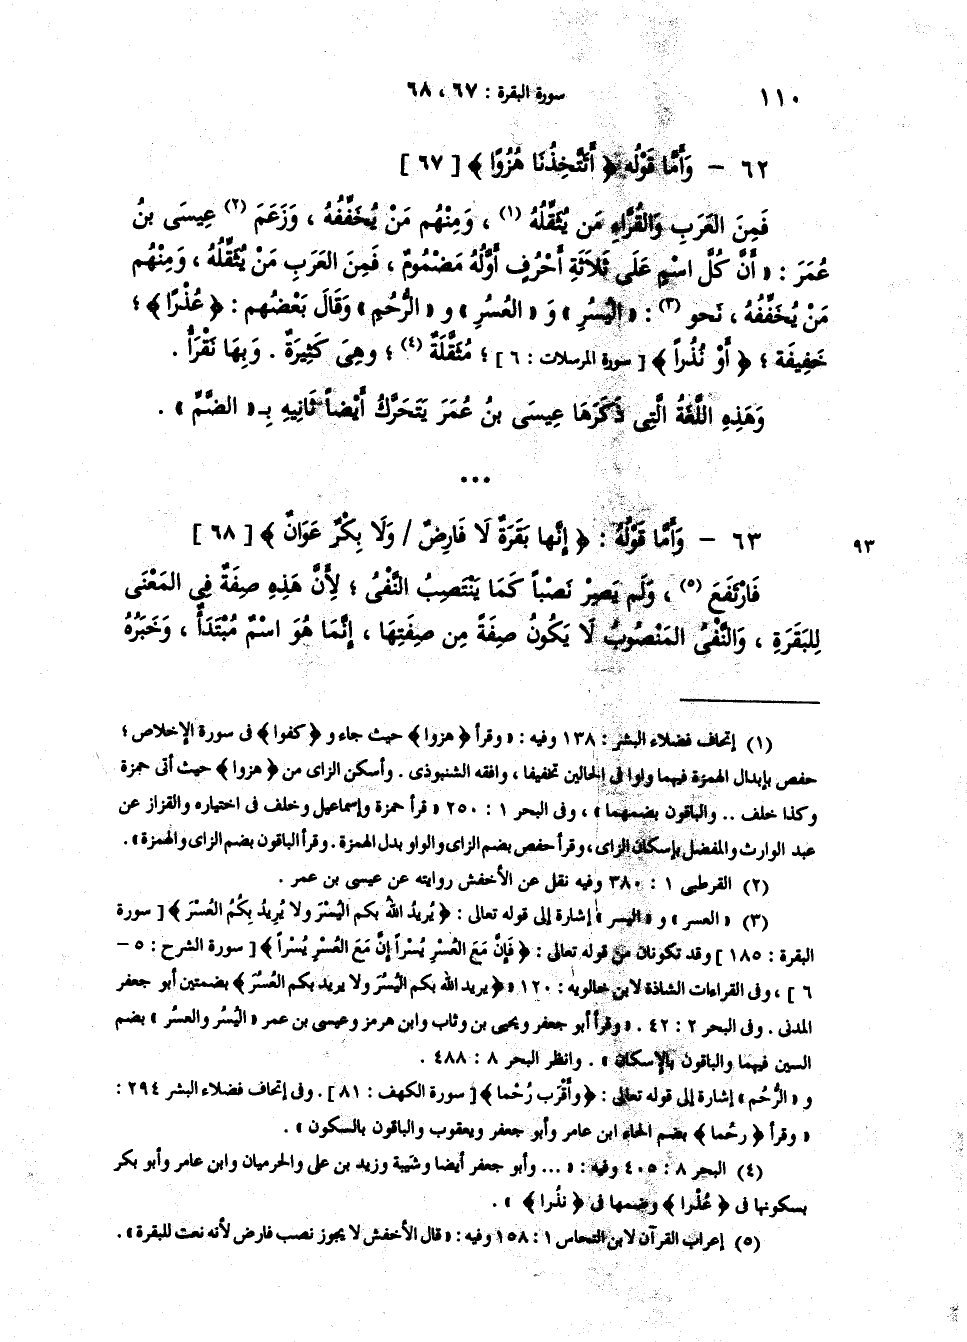 ١١٠
سورة البقرة : ٦٧ ، ٦٨
٦٢ – وَأَمَّا قَوْلُه ﴿ أَتَتَّخِذُنَا هُزُوًا ﴾ [ ٦٧ ]
فَمِنَ العَرَبِ وَالْقُرَّاءِ مَن يُثَقِّلُهُ (١) ، وَمِنْهُم مَنْ يُخَفِّفُهُ ، وَزَعَمَ (٢) عِيسَى بنُ
عُمَرَ : « أَنَّ كُلَّ اسْمٍ عَلَى ثَلَاثَةِ أَحْرُفٍ أَوَّلُهُ مَضْمُومٌ ، فَمِنَ العَرَبِ مَنْ يُثَقِّلُهُ ، وَمِنْهُم
مَنْ يُخَفِّفُهُ ، نَحو (٣) : « الْيُسُرِ » وَ « العُسُرِ » و « الرُّحُمِ » وَقَالَ بَعْضُهم : ﴿ عُذْرًا ﴾ ؛
خَفِيفَة ؛ ﴿ أَوْ نُذُراً ﴾ [ سورة المرسلات : ٦ ] ؛ مُثَقَّلَةٌ (٤) ؛ وهِىَ كَثِيرَةٌ . وَبِهَا نَقْرَأُ .
وَهَذِهِ اللُّغَةُ الَّتِى ذَكَرَهَا عِيسَى بنُ عُمَرَ يَتَحَرَّكُ أَيْضاً ثَانِيهِ بِـ « الضَّمِّ » .
...
٦٣ – وَأَمَّا قَوْلُهُ : ﴿ إِنَّها بَقَرَةٌ لَا فَارِضٌ / وَلَا بِكْرٌ عَوَانٌ ﴾ [ ٦٨ ]
٩٣
فَارْتَفَعَ (٥) ، وَلَم يَصِرْ نَصْباً كَمَا يَنْتَصِبُ النَّفْىُ ؛ لِأَنَّ هَذِهِ صِفَةٌ فِى المَعْنَى
لِلبَقَرَةِ ، وَالنَّفْىُ المَنْصُوبُ لَا يَكُونُ صِفَةً مِن صِفَتِهَا ، إِنَّمَا هُوَ اسْمٌ مُبْتَدَأٌ ، وَخَبَرُهُ
(١) إتحاف فضلاء البشر : ١٣٨ وفيه : « وقرأ ﴿ هزوا ﴾ حيث جاء و ﴿ كفوا ﴾ فى سورة الإخلاص ؛
حفص بإبدال الهمزة فيهما واوا فى الحالين تخفيفا ، وافقه الشنبوذى . وأسكن الزاى من ﴿ هزوا ﴾ حيث أتى حمزة
وكذا خلف .. والباقون بضمهما » ، وفى البحر ١ : ٢٥٠ « قرأ حمزة وإسماعيل وخلف فى اختياره والقزاز عن
عبد الوارث والمفضل بإسكان الزاى ، وقرأ حفص بضم الزاى والواو بدل الهمزة . وقرأ الباقون بضم الزاى والهمزة » .
(٢) القرطبى ١ : ٣٨٠ وفيه نقل عن الأخفش روايته عن عيسى بن عمر .
(٣) « العسر » و « اليسر » إشارة إلى قوله تعالى : ﴿ يُرِيدُ اللهُ بكم اليُسْرَ ولا يُرِيدُ بِكُمُ العُسْرَ ﴾ [ سورة
البقرة : ١٨٥ ] وقد تكونان من قوله تعالى : ﴿ فَإِنَّ مَعَ العُسْرِ يُسْراً إِنَّ مَعَ العُسْرِ يُسْراً ﴾ [ سورة الشرح : ٥ –
٦ ] ، وفى القراءات الشاذة لابن خالويه : ١٢٠ « ﴿ يريد الله بكم اليُسُرَ ولا يريد بكم العُسُرَ ﴾ بضمتين أبو جعفر
المدنى . وفى البحر ٢ : ٤٢ . « وقرأ أبو جعفر ويحيى بن وثاب وابن هرمز وعيسى بن عمر « اليُسُر والعسُر » بضم
السين فيهما والباقون بالإسكان » . وانظر البحر ٨ : ٤٨٨ .
و « الرُّحُم » إشارة إلى قوله تعالى : ﴿ وأَقْرَب رُحْما ﴾ [ سورة الكهف : ٨١ ] . وفى إتحاف فضلاء البشر ٢٩٤ :
« وقرأ ﴿ رحُما ﴾ بضم الحاء ابن عامر وأبو جعفر ويعقوب والباقون بالسكون » .
(٤) البحر ٨ : ٤٠٥ وفيه : « ... وأبو جعفر أيضا وشيبة وزيد بن على والحرميان وابن عامر وأبو بكر
بسكونها فى ﴿ عُذْرا ﴾ وضمها فى ﴿ نذُرا ﴾ » .
(٥) إعراب القرآن لابن النحاس ١ : ١٥٨ وفيه : « قال الأخفش لا يجوز نصب فارض لأنه نعت للبقرة » .